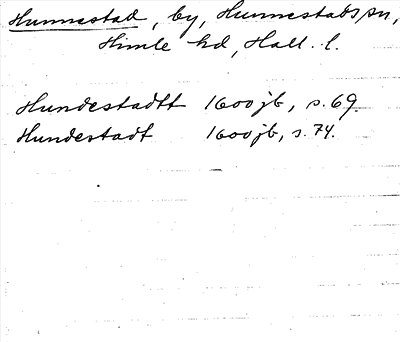 Hunnestad, by, Hunnestads sn,
Himle hd, Hall. l.
Hundestadtt 1600 jb, s. 69.
Hundestadt 1600 jb, s. 74.